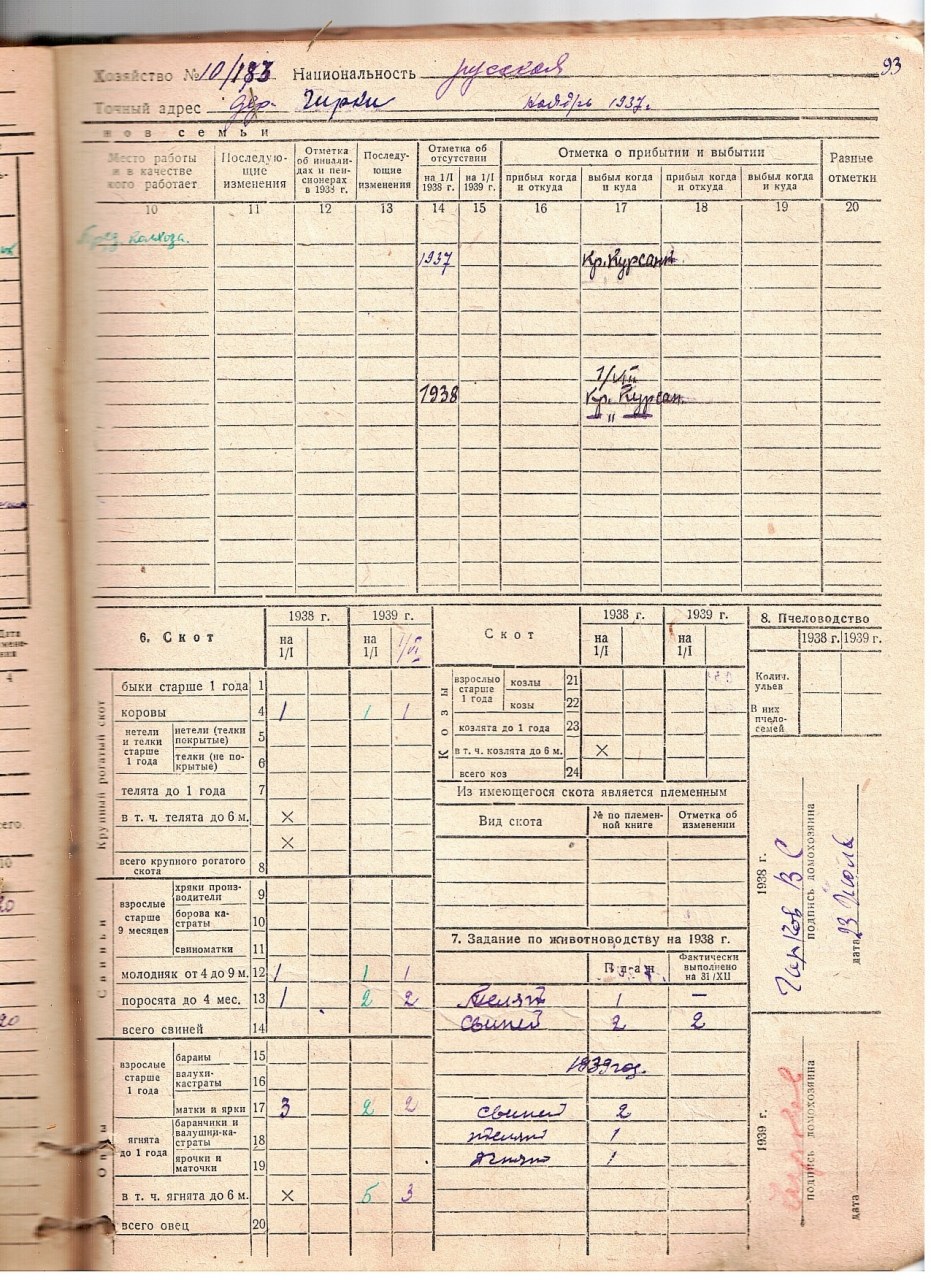 93
Хозяйство № 10/183 Национальность русская
Точный адрес дер. Чирки ноябрь 1937г.
нов семьи
Место работы и в качестве кого работает
Последующие изменения
Отметка об инвалидах и пенсионерах в 1938 г.
Последующие изменения
Отметка об отсутствии
на 1/I 1938 г. на 1/I 1939 г.
Отметка о прибытии и выбытии
прибыл когда и откуда
выбыл когда и куда
прибыл когда и откуда
выбыл когда и куда
Разные отметки
10 11 12 13 14 15 16 17 18 19 20
колхоза.
1937 Кр. Курсант.
1/VIII
1938 Кр. Курсан.
— „ —
6. Скот
1938 г. 1939 г.
на 1/I на 1/I 1/VI
Крупный рогатый скот
быки старше 1 года 1
коровы 4 1 1 1
нетели и телки старше 1 года
нетели (телки покрытые) 5
телки (не покрытые) 6
телята до 1 года 7
в т. ч. телята до 6 м. ×
×
всего крупного рогатого скота 8
Свиньи
взрослые старше 9 месяцев
хряки производители 9
борова кастраты 10
свиноматки 11
молодняк от 4 до 9 м. 12 1 1 1
поросята до 4 мес. 13 1 2 2
всего свиней 14
Овцы
взрослые старше 1 года
бараны 15
валухи-кастраты 16
матки и ярки 17 3 2 2
ягнята до 1 года
баранчики и валушки-кастраты 18
ярочки и маточки 19
в т. ч. ягнята до 6 м. × 5 3
всего овец 20
Скот
1938 г. 1939 г.
на 1/I на 1/I
Козы
взрослые старше 1 года
козлы 21
козы 22
козлята до 1 года 23
в т. ч. козлята до 6 м. ×
всего коз 24
Из имеющегося скота является племенным
Вид скота
№ по племенной книге
Отметка об изменении
7. Задание по животноводству на 1938 г.
План
Фактически выполнено на 31/XII
телят 1 —
свиней 2 2
1939 год.
свиней 2
телят 1
ягнят 1
8. Пчеловодство
1938 г. 1939 г.
Колич. ульев
В них пчело-семей
1938 г.
Чирков В С
подпись домохозяина
дата 23 Июля
1939 г.
Чирков
подпись домохозяина
дата